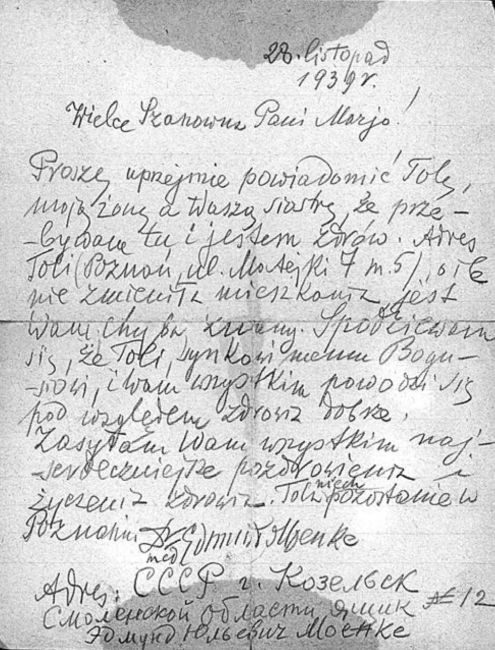 28. listopad
1939 r.
Wielce Szanowna Pani Marjo!
Proszę uprzejmie powiadomić Tolę,
moją żonę a Waszą siostrę, że prze-
-bywam tu i jestem zdrów. Adres
Toli (Poznań, ul. Matejki 7 m. 5), o ile
nie zmieniła mieszkania, jest
Wam chyba znany. Spodziewam
się, że Toli, synkowi memu Bogu-
-siowi, i wam wszystkim powodzi się
pod względem zdrowia dobrze.
Zasyłam Wam wszystkim naj-
-serdeczniejsze pozdrowienia i
życzenia zdrowia. Tola niech pozostanie w
Poznaniu Dr med Edmund Moenke
Adres: СССР г. Козельск
Смоленской области ящик № 12
Эдмунд Юльевич Моенке